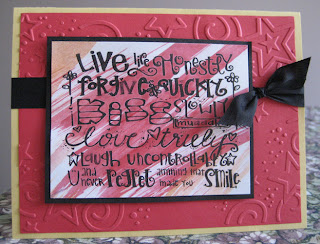 Live life Honestly
forgive quickly
! KISS slowly
love truly
laugh uncontrollably
and never Regret anything that made you Smile